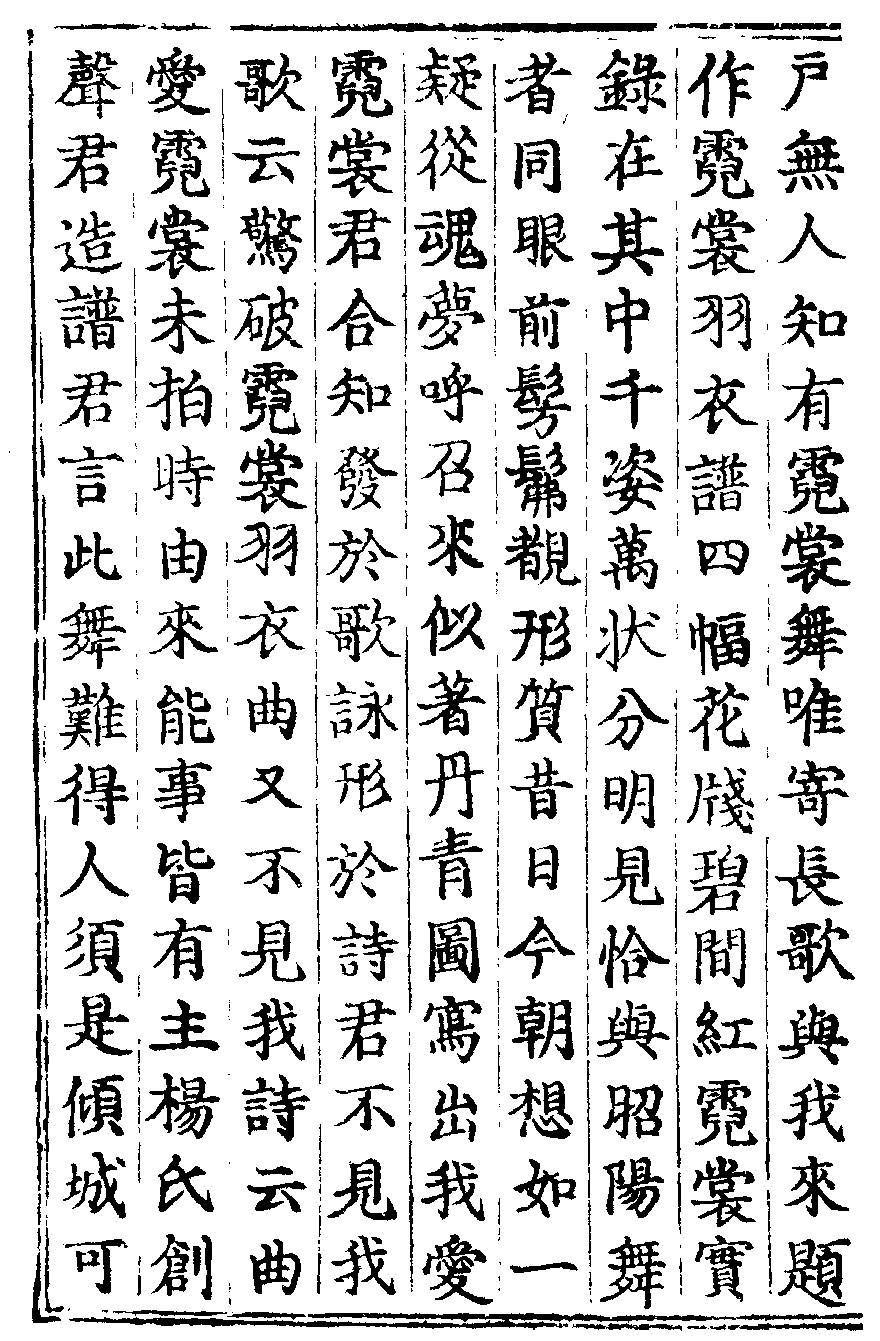 戸無人知有霓裳舞唯寄長歌與我來題
作霓裳羽衣譜四幅花牋碧間紅霓裳實
錄在其中千姿萬狀分明見恰與昭陽舞
者同眼前髣髴覩形質昔日今朝想如一
疑從魂夢呼召來似著丹青圖寫出我愛
霓裳君合知發於歌詠形於詩君不見我
歌云驚破霓裳羽衣曲又不見我詩云曲
愛霓裳未拍時由來能事皆有主楊氏創
聲君造譜君言此舞難得人須是傾城可